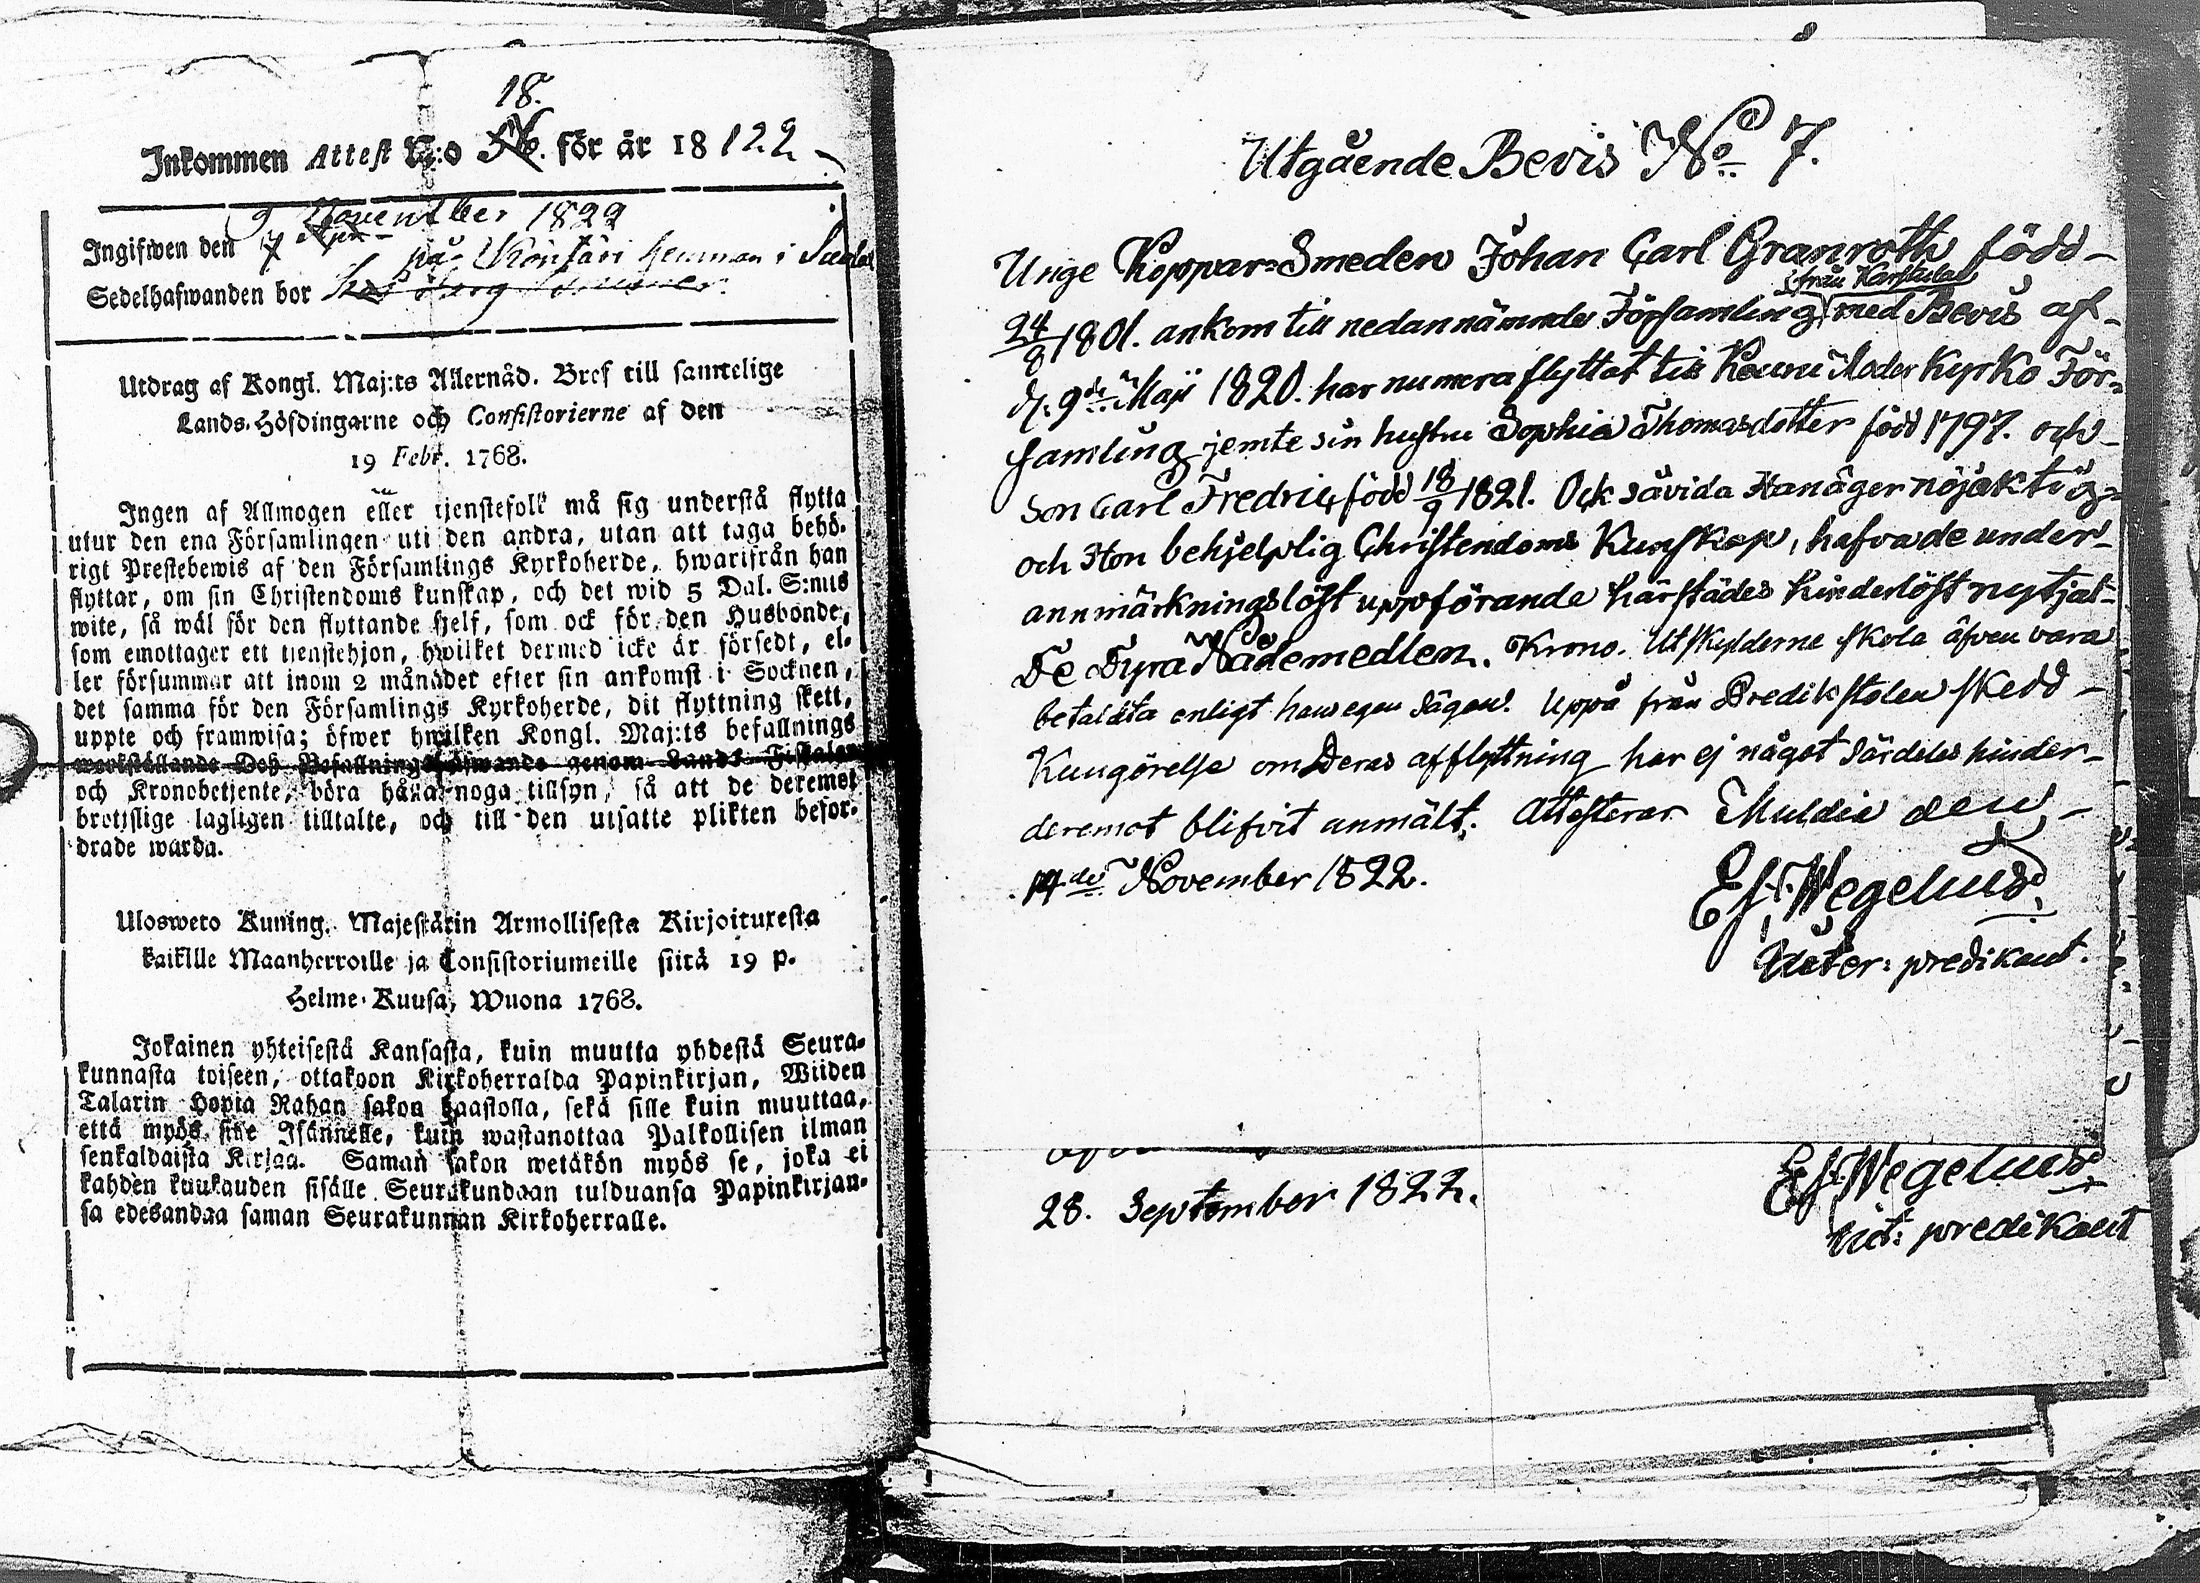 18.
Inkommen Attest N:o för år 18122
9 November 1822
Ingifwen den 7 på Köntäri hemman i
Sedelhafwanden bor hos
Utdrag af Kongl. Maj:ts Allernåd. Bref till samtelige
Lands-Höfdingarne och Consistorierne af den
19 Febr. 1768.
Ingen af Allmogen eller tjenstefolk må sig understå flytta
utur den ena Församlingen uti den andra, utan att taga behö-
rigt Prestebewis af den Församlings Kyrkoherde, hwarifrån han
flyttar, om sin Christendoms kunskap, och det wid 5 Dal. S:mts
wite, så wäl för den flyttande sjelf, som ock för den Husbonde,
som emottager ett tjenstehjon, hwilket dermed icke är försedt, el-
ler försummar att inom 2 månader efter sin ankomst i Socknen,
det samma för den Församlings Kyrkoherde, dit flyttning skett,
uppte och framwisa; öfwer hwilken Kongl. Maj:ts befallnings
werkställande Dess Befallningshafwande genom Lands-Fiskaler
och Kronobetjente, böra hålla noga tillsyn, så att de deremot
brottslige lagligen tilltalte, och till den utsatte plikten befor-
drade warda.
Ulosweto Kuning. Majestätin Armollisesta Kirjoituxesta
kaikille Maanherroille ja Consistoriumeille siitä 19 p.
Helme-Kuusa, Wuona 1768.
Jokainen yhteisestä Kansasta, kuin muutta yhdestä Seura-
kunnasta toiseen, ottakoon Kirkoherralda Papinkirjan, Wiiden
Talarin Hopia Rahan sakon haastolla, sekä sille kuin muuttaa,
että myös sille Isännelle, kuin wastanottaa Palkollisen ilman
senkaldaista Kirjaa. Saman sakon wetäkön myös se, joka ei
kahden kuukauden sisälle Seurakundaan tulduansa Papinkirjan-
sa edesandaa saman Seurakunnan Kirkoherralle.
Utgående Bevis No 7.
Unge Koppar-Smeden Johan Carl Granroth född
från Karstula
24/8 1801. ankom till nedannämnde Församling med Bevis af
d. 9de Maji 1820. har numera flyttat till Keuru Moder Kyrko För-
samling jemte sin hustru Sophia Thomasdotter född 1797. och
Son Carl Fredric, född 18/9 1821. Ock såvida Han äger nöjaktig
och Hon behjelplig Christendoms Kunskap, hafva de under
annmärkningslöst uppförande härstädes hinderlöst nytjat
De Dyra Nådemedlen. Krono-Utskylderne skola äfven vara
betaldta enligt hans egen sägen. Uppå från Predikstolen skedd
Kungörelse om Deras afflyttning har ej något särdeles hinder
deremot blifvit anmält. Attesterar Muldia den
14de November 1822.
Es. Wegelius
predikant.
28. September 1822.
Es. Wegelius
Vict: predikant